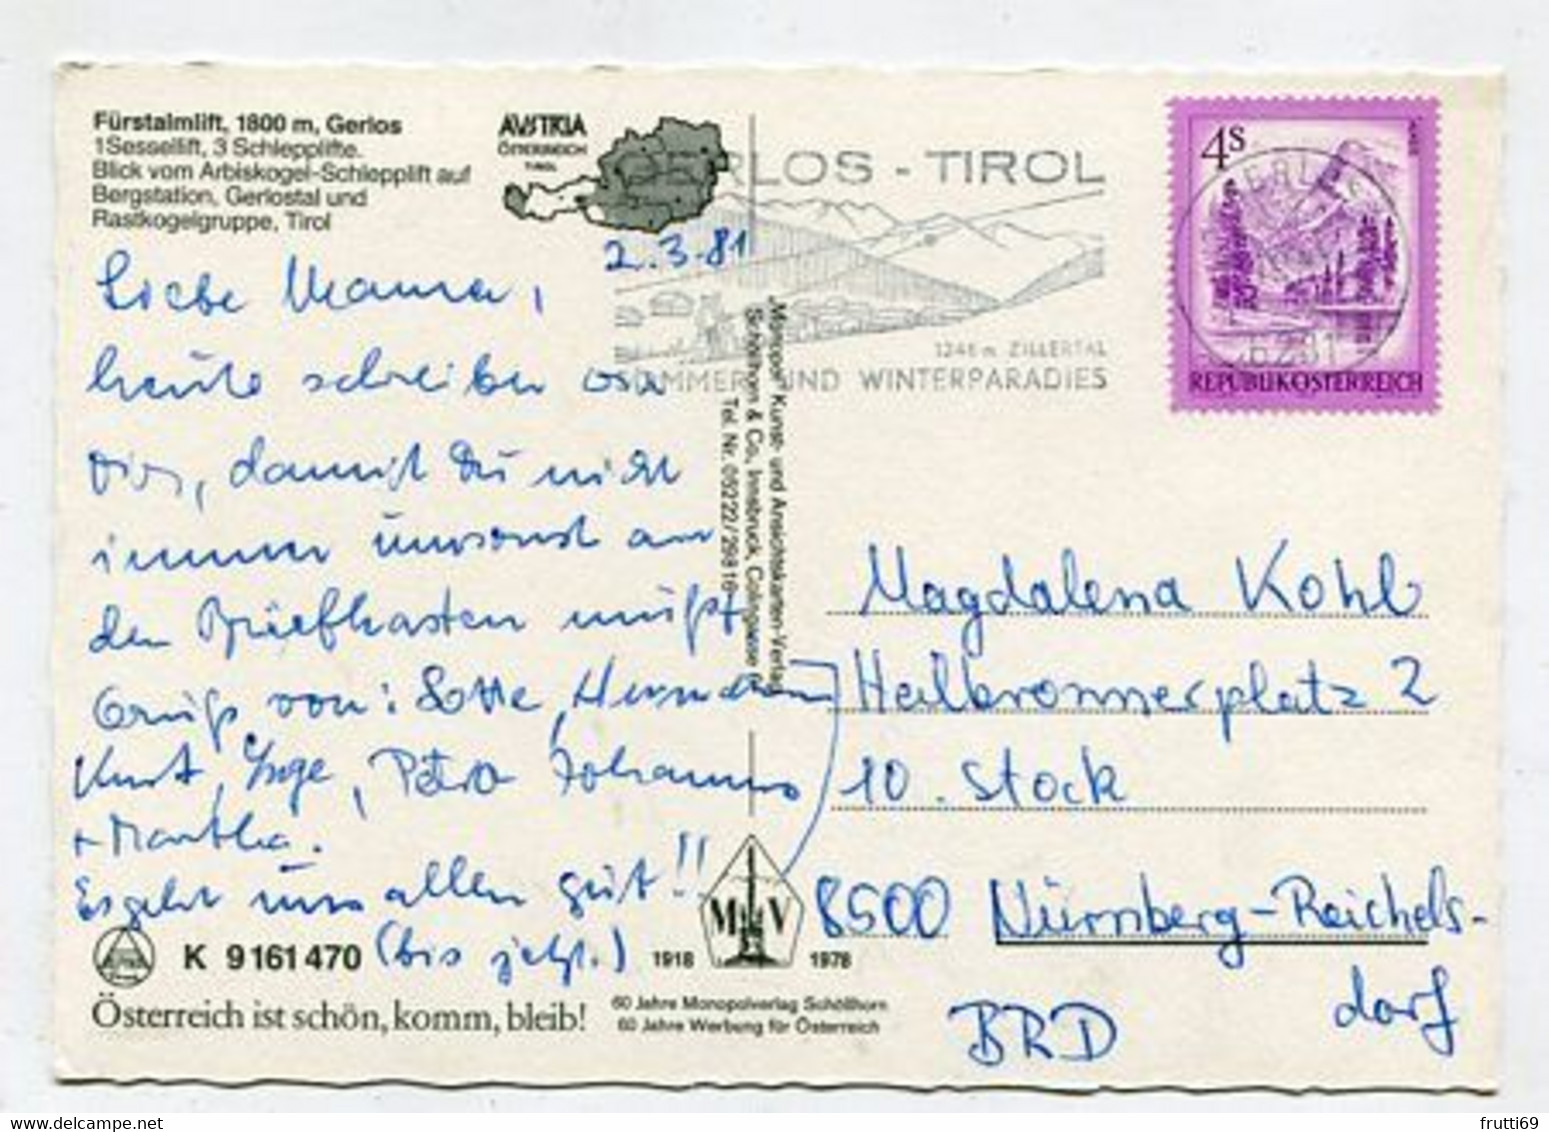 Fürstalmlift, 1800 m, Gerlos
1 Sessellift, 3 Schlepplifte.
Blick vom Arbiskogel-Schlepplift auf
Bergstation, Gerlostal und
Rastkogelgruppe, Tirol
AUSTRIA
ÖSTERREICH
TIROL
GERLOS - TIROL
1246 m ZILLERTAL
SOMMER- UND WINTERPARADIES
4S
REPUBLIK ÖSTERREICH
2.3.81
Liebe Mama,
heute schreiben wir
Dir, damit Du nicht
immer umsonst an
den Briefkasten mußt
Gruß von: Lotte, Hermann
Kurt, Inge, Petra Johannes
+ Martha.
Es geht uns allen gut!!
(bis jetzt.)
"Monopol" Kunst- und Ansichtskarten-Verlag
Schöllhorn & Co., Innsbruck, Colingasse
Tel. Nr. 05222/26816
Magdalena Kohl
Heilbronnerplatz 2
10. Stock
8500 Nürnberg-Reichels-
dorf
BRD
K 9161470
1918 M V 1978
Österreich ist schön, komm, bleib!
60 Jahre Monopolverlag Schöllhorn
60 Jahre Werbung für Österreich
frutti69